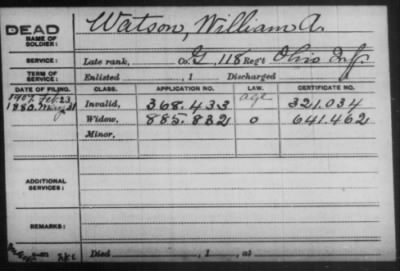 DEAD
NAME OF SOLDIER: Watson, William A.
SERVICE: Late rank, Co. G, 118 Reg't Ohio Inf.
TERM OF SERVICE: Enlisted , 1 Discharged
DATE OF FILING. CLASS. APPLICATION NO. LAW. CERTIFICATE NO.
1907. Feb. 23 Invalid, 368.433 age 321.034
1880. 31 Widow, 885.832 o 641.462
Minor,
ADDITIONAL SERVICES:
REMARKS:
Died , 1 , at